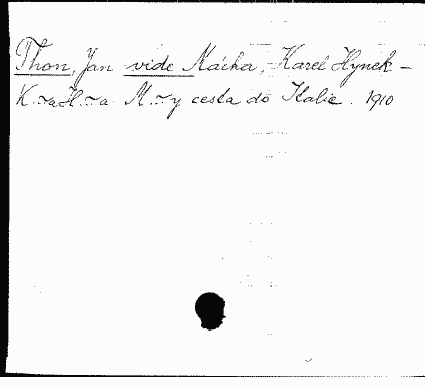 Thon, Jan vide Mácha, Karel Hynek –
K.~a H.~a M.~y cesta do Italie. 1910